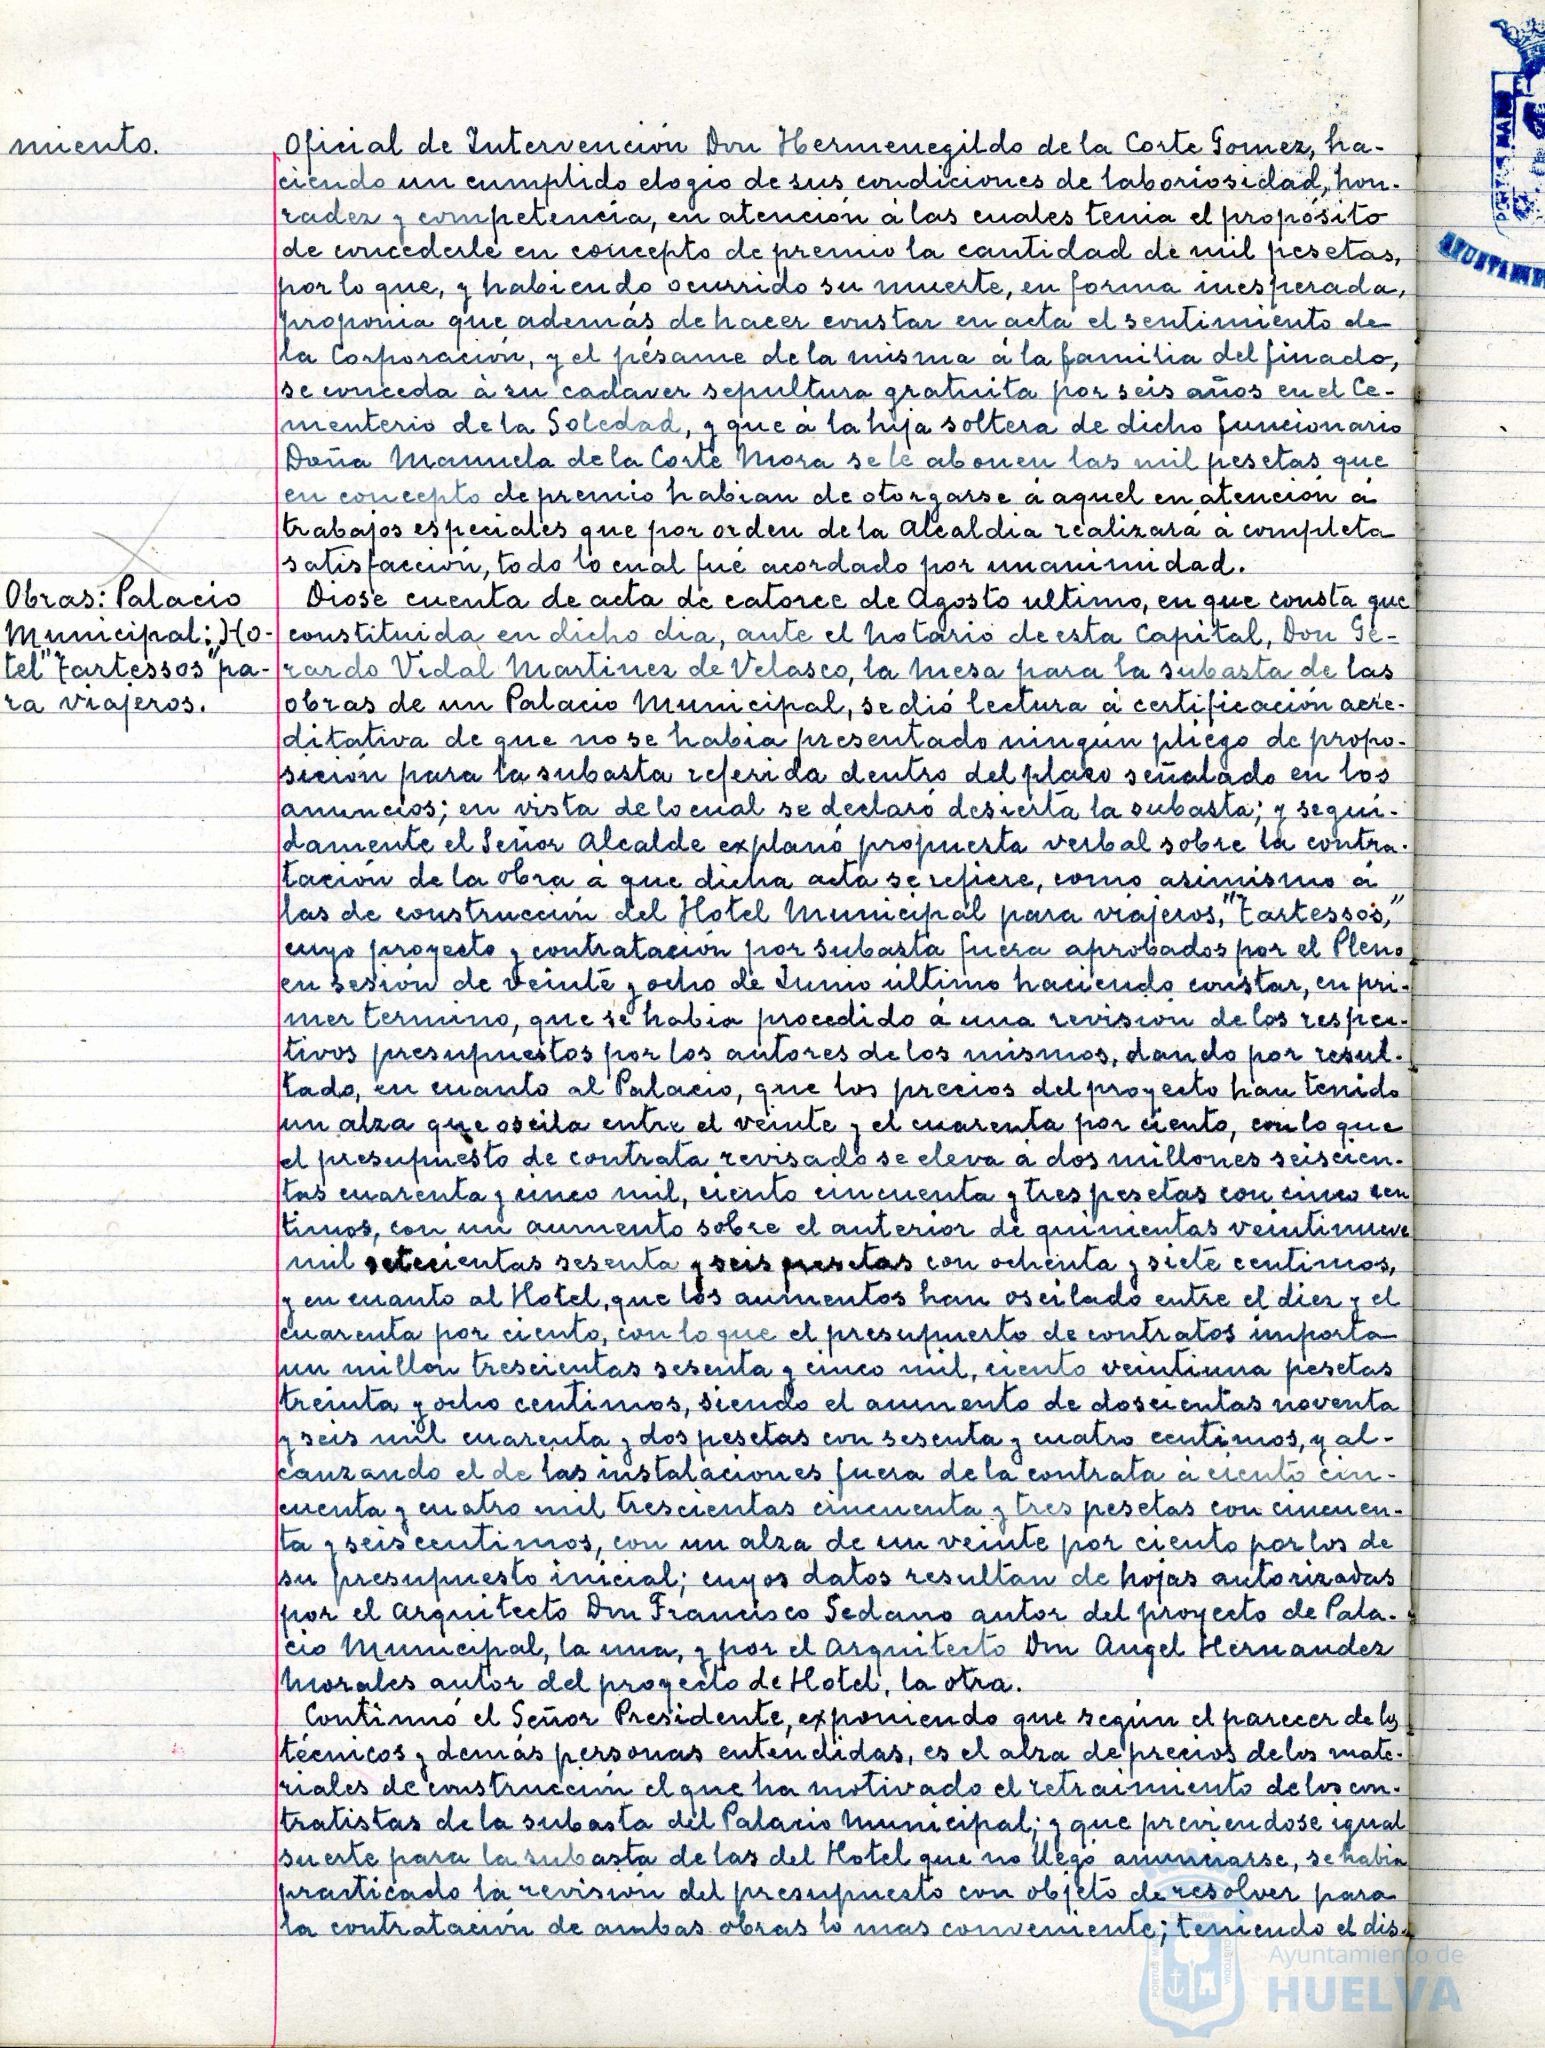 miento.
Oficial de Intervención Don Hermenegildo de la Corte Gomez, ha-
ciendo un cumplido elogio de sus condiciones de laboriosidad, hon-
radez y competencia, en atención á las cuales tenia el propósito
de concederle en concepto de premio la cantidad de mil pesetas,
por lo que, y habiendo ocurrido su muerte, en forma inesperada,
proponia que además de hacer constar en acta el sentimiento de
la Corporación, y el pésame de la misma á la familia del finado,
se conceda á su cadaver sepultura gratuita por seis años en el Ce-
menterio de la Soledad, y que á la hija soltera de dicho funcionario
Doña Manuela de la Corte Mora se le abonen las mil pesetas que
en concepto de premio habian de otorgarse á aquel en atención á
trabajos especiales que por orden de la Alcaldia realizará á completa
satisfacción, todo lo cual fué acordado por unanimidad.
Obras: Palacio
Municipal; Ho-
tel "Tartessos" pa-
ra viajeros.
Diose cuenta de acta de catorce de Agosto ultimo, en que consta que
constituida en dicho dia, ante el notario de esta Capital, Don Ge-
rardo Vidal Martinez de Velasco, la mesa para la subasta de las
obras de un Palacio Municipal, se dió lectura á certificación acre-
ditativa de que no se habia presentado ningún pliego de propo-
sición para la subasta referida dentro del plazo señalado en los
anuncios; en vista de lo cual se declaró desierta la subasta; y segui-
damente el Señor Alcalde explanó propuesta verbal sobre la contra-
tación de la obra á que dicha acta se refiere, como asimismo á
las de construcción del Hotel Municipal para viajeros, "Tartessos,"
cuyo proyecto y contratación por subasta fuera aprobados por el Pleno
en sesión de veinte y ocho de Junio último haciendo constar, en pri-
mer termino, que se habia procedido á una revisión de los respec-
tivos presupuestos por los autores de los mismos, dando por resul-
tado, en cuanto al Palacio, que los precios del proyecto han tenido
un alza que oscila entre el veinte y el cuarenta por ciento, con lo que
el presupuesto de contrata revisado se eleva á dos millones seiscien-
tas cuarenta y cinco mil, ciento cincuenta y tres pesetas con cinco cen
timos, con un aumento sobre el anterior de quinientas veintinueve
mil setecientas sesenta y seis pesetas con ochenta y siete centimos,
y en cuanto al Hotel, que los aumentos han oscilado entre el diez y el
cuarenta por ciento, con lo que el presupuesto de contratos importa
un millon trescientas sesenta y cinco mil, ciento veintiuna pesetas
treinta y ocho centimos, siendo el aumento de doscientas noventa
y seis mil cuarenta y dos pesetas con sesenta y cuatro centimos, y al-
canzando el de las instalaciones fuera de la contrata á ciento cin-
cuenta y cuatro mil trescientas cincuenta y tres pesetas con cincuen-
ta y seis centimos, con un alza de un veinte por ciento por los de
su presupuesto inicial; cuyos datos resultan de hojas autorizadas
por el Arquitecto Don Francisco Sedano autor del proyecto de Pala-
cio Municipal, la una, y por el Arquitecto Don Angel Hernandez
Morales autor del proyecto de Hotel, la otra.
Continuó el Señor Presidente, exponiendo que según el parecer de los
técnicos y demás personas entendidas, es el alza de precios de los mate-
riales de construcción el que ha motivado el retraimiento de los con-
tratistas de la subasta del Palacio Municipal; y que previendose igual
suerte para la subasta de las del Hotel que no llegó anunciarse, se habia
practicado la revisión del presupuesto con objeto de resolver para
la contratación de ambas obras lo mas conveniente; teniendo el dis-
Ayuntamiento de
HUELVA